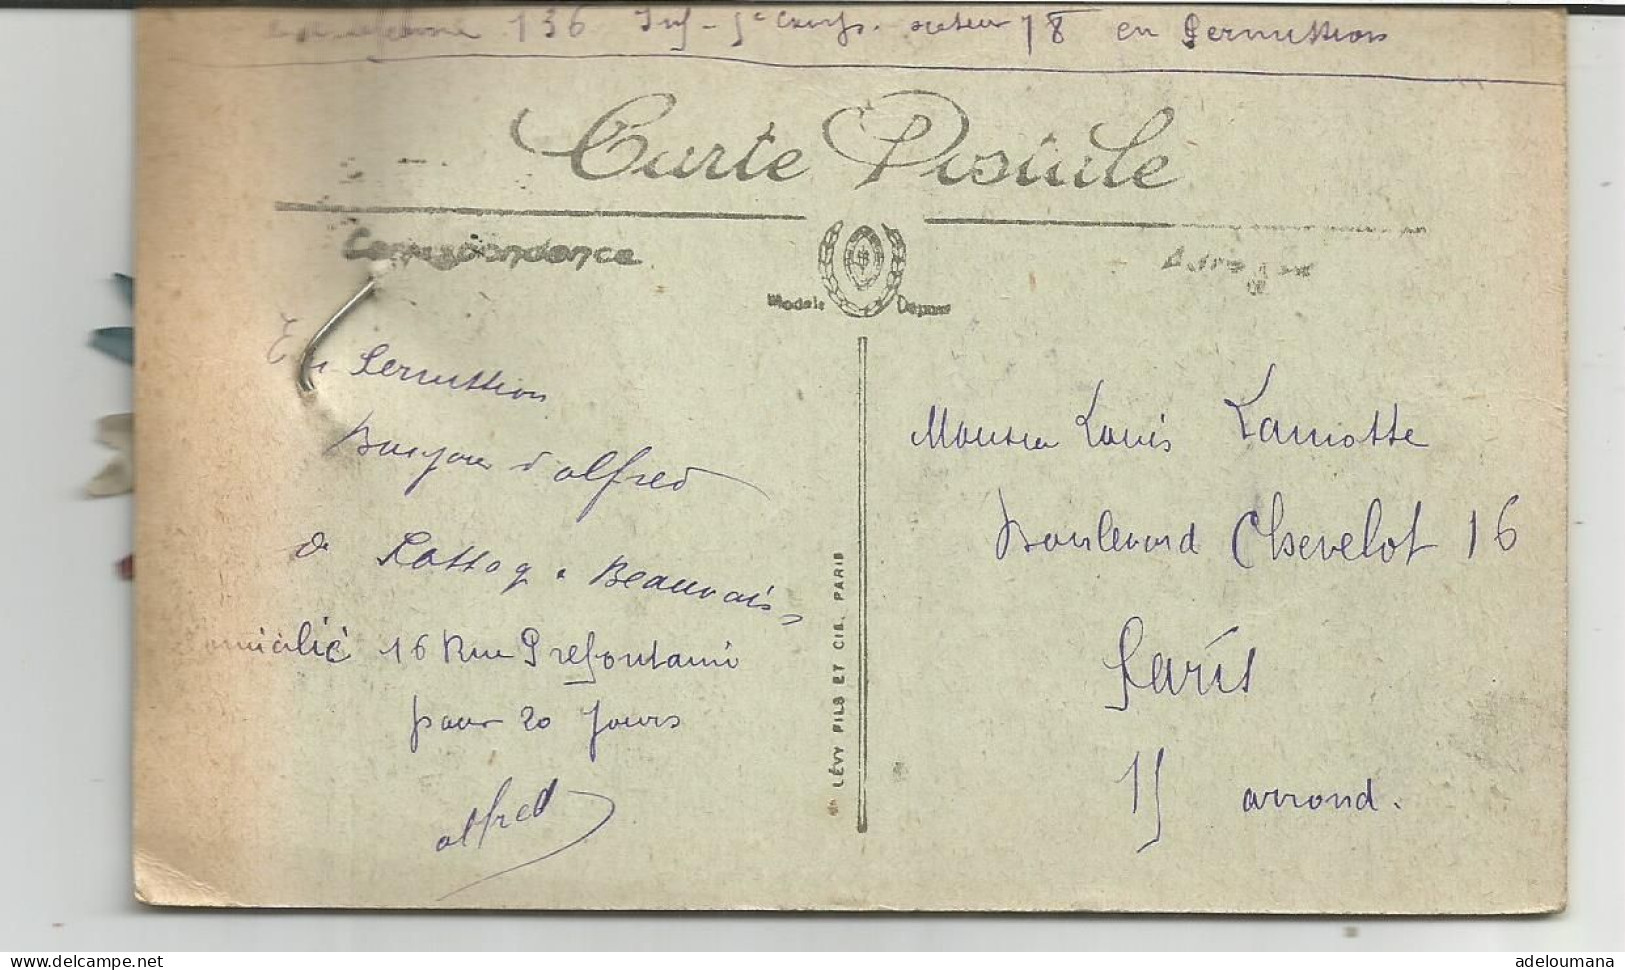 136 Inf - 5e Comp. secteur 78 en Permission
Carte Postale
Correspondance
Adresse
Modele Depose
En Permission
Bonjour d'alfred
de Beauvais
domicilié 16 Rue Prefontaine
pour 20 jours
alfred
LÉVY FILS ET CIE, PARIS
Monsieur Louis Lamotte
Boulevard Chevelot 16
Paris
15 arrond.
adeloumana
www.delcampe.net